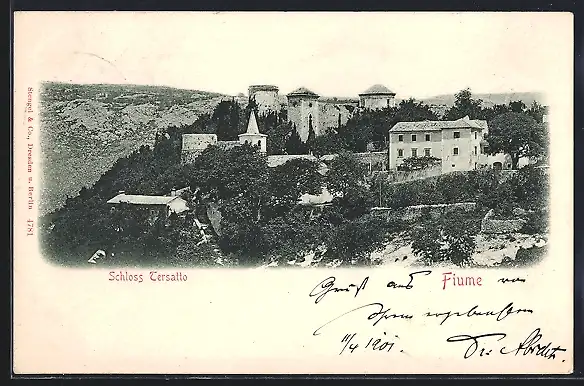 Stengel & Co., Dresden u. Berlin 4781
Schloss Tersatto
Gruß aus Fiume von
Ihrem ergebensten
11/4 1901. Dr.